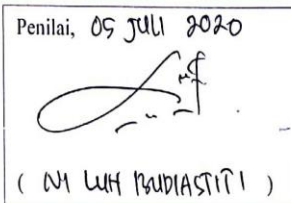 Penilai, 05 JULI 2020
( NI LUH BUDIASTITI )